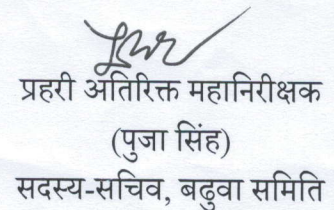 प्रहरी अतिरिक्त महानिरीक्षक
(पुजा सिंह)
सदस्य-सचिव, बढुवा समिति